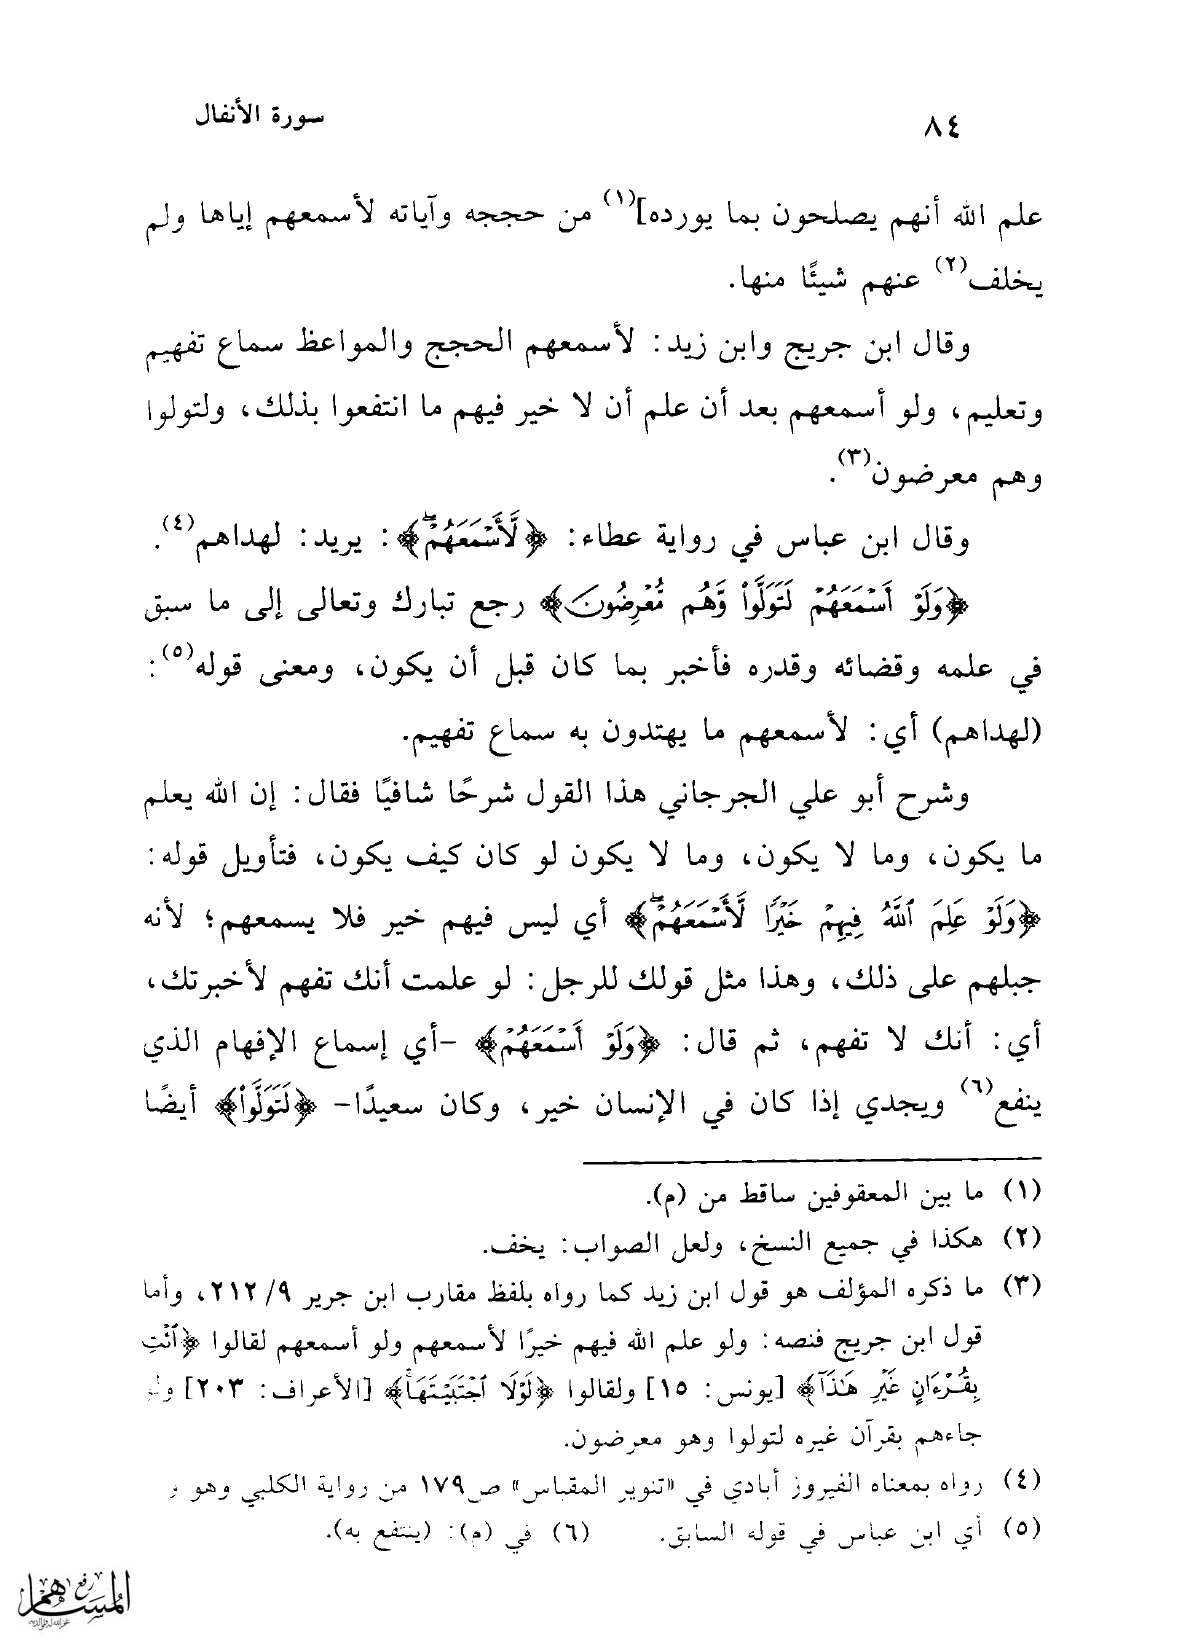 ٨٤
سورة الأنفال
علم الله أنهم يصلحون بما يورده](١) من حججه وآياته لأسمعهم إياها ولم
يخلف(٢) عنهم شيئًا منها.
وقال ابن جريج وابن زيد: لأسمعهم الحجج والمواعظ سماع تفهيم
وتعليم، ولو أسمعهم بعد أن علم أن لا خير فيهم ما انتفعوا بذلك، ولتولوا
وهم معرضون(٣).
وقال ابن عباس في رواية عطاء: ﴿لَّأَسْمَعَهُمْۖ﴾: يريد: لهداهم(٤).
﴿وَلَوْ أَسْمَعَهُمْ لَتَوَلَّوا۟ وَّهُم مُّعْرِضُونَ﴾ رجع تبارك وتعالى إلى ما سبق
في علمه وقضائه وقدره فأخبر بما كان قبل أن يكون، ومعنى قوله(٥):
(لهداهم) أي: لأسمعهم ما يهتدون به سماع تفهيم.
وشرح أبو علي الجرجاني هذا القول شرحًا شافيًا فقال: إن الله يعلم
ما يكون، وما لا يكون، وما لا يكون لو كان كيف يكون، فتأويل قوله:
﴿وَلَوْ عَلِمَ ٱللَّهُ فِيهِمْ خَيْرًا لَّأَسْمَعَهُمْۖ﴾ أي ليس فيهم خير فلا يسمعهم؛ لأنه
جبلهم على ذلك، وهذا مثل قولك للرجل: لو علمت أنك تفهم لأخبرتك،
أي: أنك لا تفهم، ثم قال: ﴿وَلَوْ أَسْمَعَهُمْ﴾ -أي إسماع الإفهام الذي
ينفع(٦) ويجدي إذا كان في الإنسان خير، وكان سعيدًا- ﴿لَتَوَلَّوا۟﴾ أيضًا
(١) ما بين المعقوفين ساقط من (م).
(٢) هكذا في جميع النسخ، ولعل الصواب: يخف.
(٣) ما ذكره المؤلف هو قول ابن زيد كما رواه بلفظ مقارب ابن جرير ٩/ ٢١٢، وأما
قول ابن جريج فنصه: ولو علم الله فيهم خيرًا لأسمعهم ولو أسمعهم لقالوا ﴿ٱئْتِ
بِقُرْءَانٍ غَيْرِ هَٰذَآ﴾ [يونس: ١٥] ولقالوا ﴿لَوْلَا ٱجْتَبَيْتَهَاۚ﴾ [الأعراف: ٢٠٣] ولو
جاءهم بقرآن غيره لتولوا وهو معرضون.
(٤) رواه بمعناه الفيروز أبادي في «تنوير المقباس» ص١٧٩ من رواية الكلبي وهو و
(٥) أي ابن عباس في قوله السابق. (٦) في (م): (ينتفع به).
المساهم
رفع